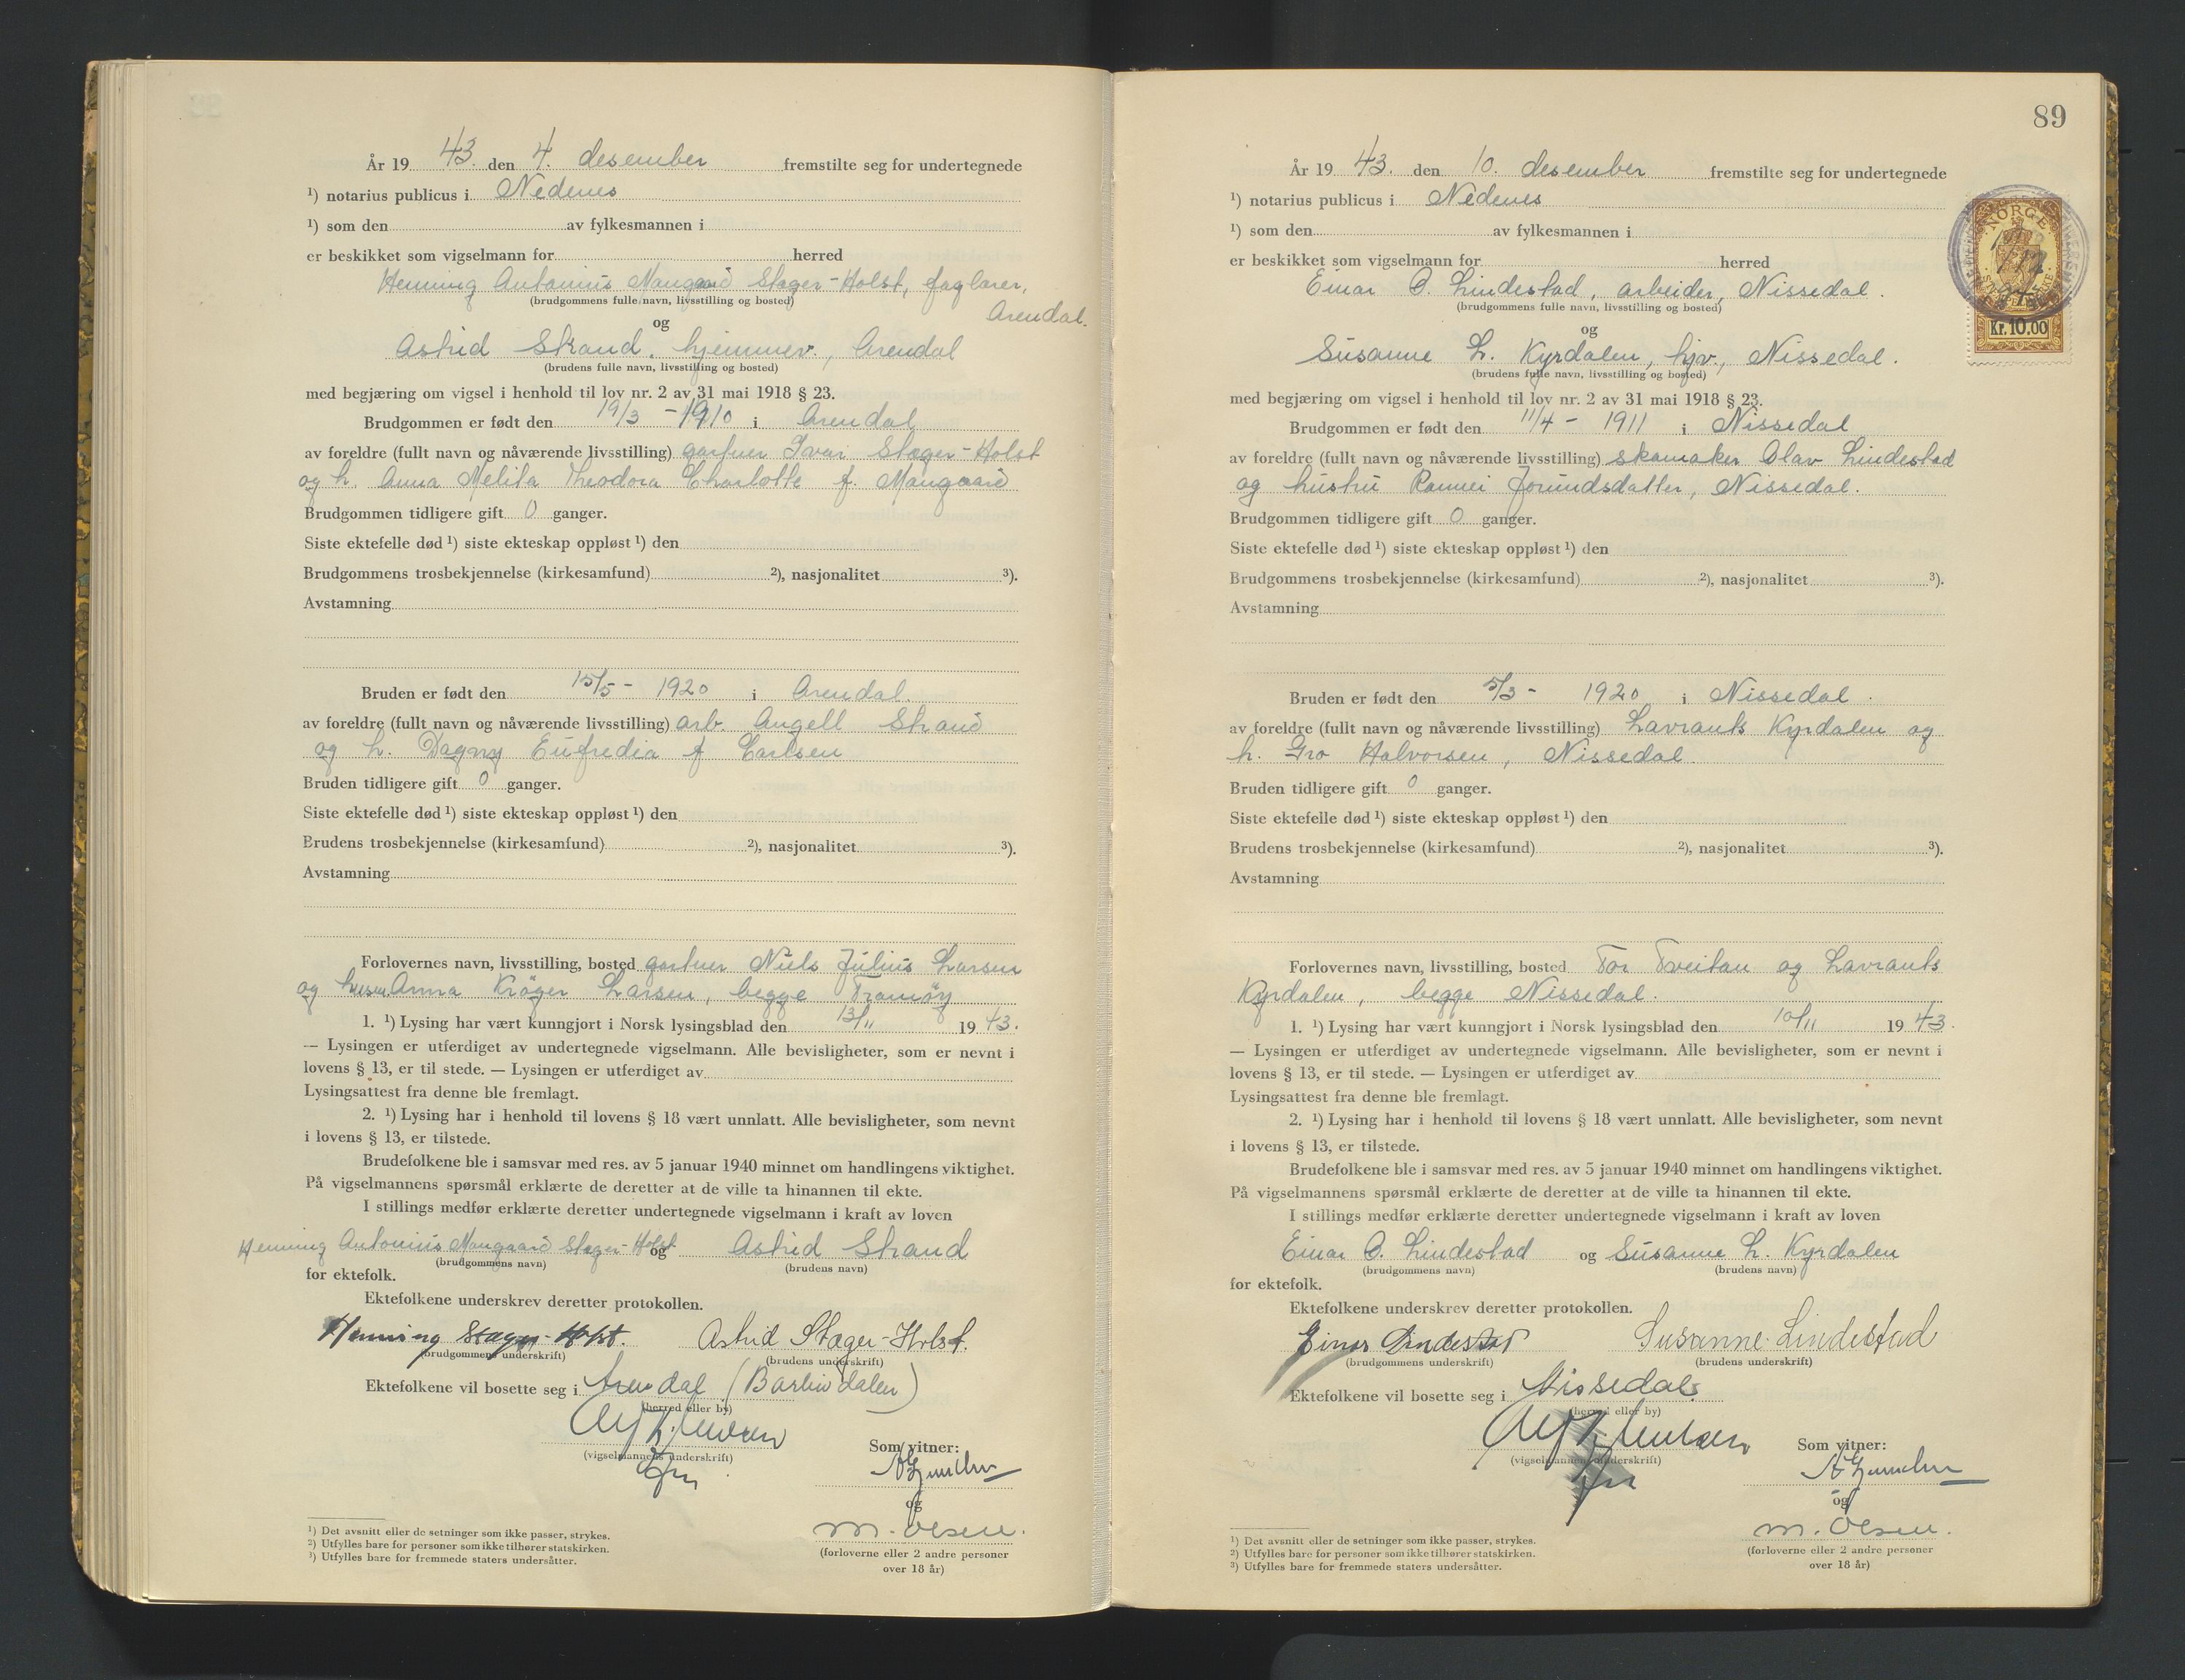 År 19 43. den 4. desember fremstilte seg for undertegnede
¹) notarius publicus i Nedenes
¹) som den av fylkesmannen i
er beskikket som vigselmann for herred
Henning Antonius Mangaard Stager-Holst, faglærer,
(brudgommens fulle navn, livsstilling og bosted)
Arendal.
og
Astrid Strand, hjemmev., Arendal
(brudens fulle navn, livsstilling og bosted)
med begjæring om vigsel i henhold til lov nr. 2 av 31 mai 1918 § 23.
Brudgommen er født den 19/3 - 1910 i Arendal
av foreldre (fullt navn og nåværende livsstilling) gartner Ivar Stager-Holst
og h. Anna Melita Theodora Charlotte f. Mangaard
Brudgommen tidligere gift 0 ganger.
Siste ektefelle død ¹) siste ekteskap oppløst ¹) den
Brudgommens trosbekjennelse (kirkesamfund) ²), nasjonalitet ³).
Avstamning
Bruden er født den 15/5 - 1920 i Arendal.
av foreldre (fullt navn og nåværende livsstilling) arb. Angell Strand
og h. Dagny Eufredia f Carlsen
Bruden tidligere gift 0 ganger.
Siste ektefelle død ¹) siste ekteskap oppløst ¹) den
Brudens trosbekjennelse (kirkesamfund) ²), nasjonalitet ³).
Avstamning
Forlovernes navn, livsstilling, bosted gartner Niels Julius Larsen
og hustru Anna Krøger Larsen, begge Tromøy
1. ¹) Lysing har vært kunngjort i Norsk lysingsblad den 13/11 19 43.
— Lysingen er utferdiget av undertegnede vigselmann. Alle bevisligheter, som er nevnt i
lovens § 13, er til stede. — Lysingen er utferdiget av
Lysingsattest fra denne ble fremlagt.
2. ¹) Lysing har i henhold til lovens § 18 vært unnlatt. Alle bevisligheter, som nevnt
i lovens § 13, er tilstede.
Brudefolkene ble i samsvar med res. av 5 januar 1940 minnet om handlingens viktighet.
På vigselmannens spørsmål erklærte de deretter at de ville ta hinannen til ekte.
I stillings medfør erklærte deretter undertegnede vigselmann i kraft av loven
Henning Antonius Mangaard Stager-Holst og Astrid Strand
(brudgommens navn) (brudens navn)
for ektefolk.
Ektefolkene underskrev deretter protokollen.
Henning Stager-Holst. Astrid Stager-Holst.
(brudgommens underskrift) (brudens underskrift)
Ektefolkene vil bosette seg i Arendal (Barbudalen)
(herred eller by)
(vigselmannens underskrift)
Som vitner:
og
M. Olsen.
(forloverne eller 2 andre personer
over 18 år)
¹) Det avsnitt eller de setninger som ikke passer, strykes.
²) Utfylles bare for personer som ikke tilhører statskirken.
³) Utfylles bare for fremmede staters undersåtter.
89
År 19 43. den 10. desember fremstilte seg for undertegnede
¹) notarius publicus i Nedenes
¹) som den av fylkesmannen i
er beskikket som vigselmann for herred
Einar O. Lindestad, arbeider, Nissedal.
(brudgommens fulle navn, livsstilling og bosted)
og
Susanne L. Kyrdalen, hjv., Nissedal.
(brudens fulle navn, livsstilling og bosted)
NORGE
Kr. 10.00
med begjæring om vigsel i henhold til lov nr. 2 av 31 mai 1918 § 23.
Brudgommen er født den 11/4 - 1911 i Nissedal
av foreldre (fullt navn og nåværende livsstilling) skomaker Olav Lindestad
og hustru Rannei Jorundsdatter, Nissedal.
Brudgommen tidligere gift 0 ganger.
Siste ektefelle død ¹) siste ekteskap oppløst ¹) den
Brudgommens trosbekjennelse (kirkesamfund) ²), nasjonalitet ³).
Avstamning
Bruden er født den 5/3 - 1920 i Nissedal.
av foreldre (fullt navn og nåværende livsstilling) Lavrants Kyrdalen og
h. Gro Halvorsen, Nissedal.
Bruden tidligere gift 0 ganger.
Siste ektefelle død ¹) siste ekteskap oppløst ¹) den
Brudens trosbekjennelse (kirkesamfund) ²), nasjonalitet ³).
Avstamning
Forlovernes navn, livsstilling, bosted Tor Tveitan og Lavrants
Kyrdalen, begge Nissedal.
1. ¹) Lysing har vært kunngjort i Norsk lysingsblad den 10/11 19 43.
— Lysingen er utferdiget av undertegnede vigselmann. Alle bevisligheter, som er nevnt i
lovens § 13, er til stede. — Lysingen er utferdiget av
Lysingsattest fra denne ble fremlagt.
2. ¹) Lysing har i henhold til lovens § 18 vært unnlatt. Alle bevisligheter, som nevnt
i lovens § 13, er tilstede.
Brudefolkene ble i samsvar med res. av 5 januar 1940 minnet om handlingens viktighet.
På vigselmannens spørsmål erklærte de deretter at de ville ta hinannen til ekte.
I stillings medfør erklærte deretter undertegnede vigselmann i kraft av loven
Einar O. Lindestad og Susanne L. Kyrdalen
(brudgommens navn) (brudens navn)
for ektefolk.
Ektefolkene underskrev deretter protokollen.
Einar Lindestad Susanne Lindestad
(brudgommens underskrift) (brudens underskrift)
Ektefolkene vil bosette seg i Nissedal.
(herred eller by)
(vigselmannens underskrift)
Som vitner:
og
M. Olsen.
(forloverne eller 2 andre personer
over 18 år)
¹) Det avsnitt eller de setninger som ikke passer, strykes.
²) Utfylles bare for personer som ikke tilhører statskirken.
³) Utfylles bare for fremmede staters undersåtter.